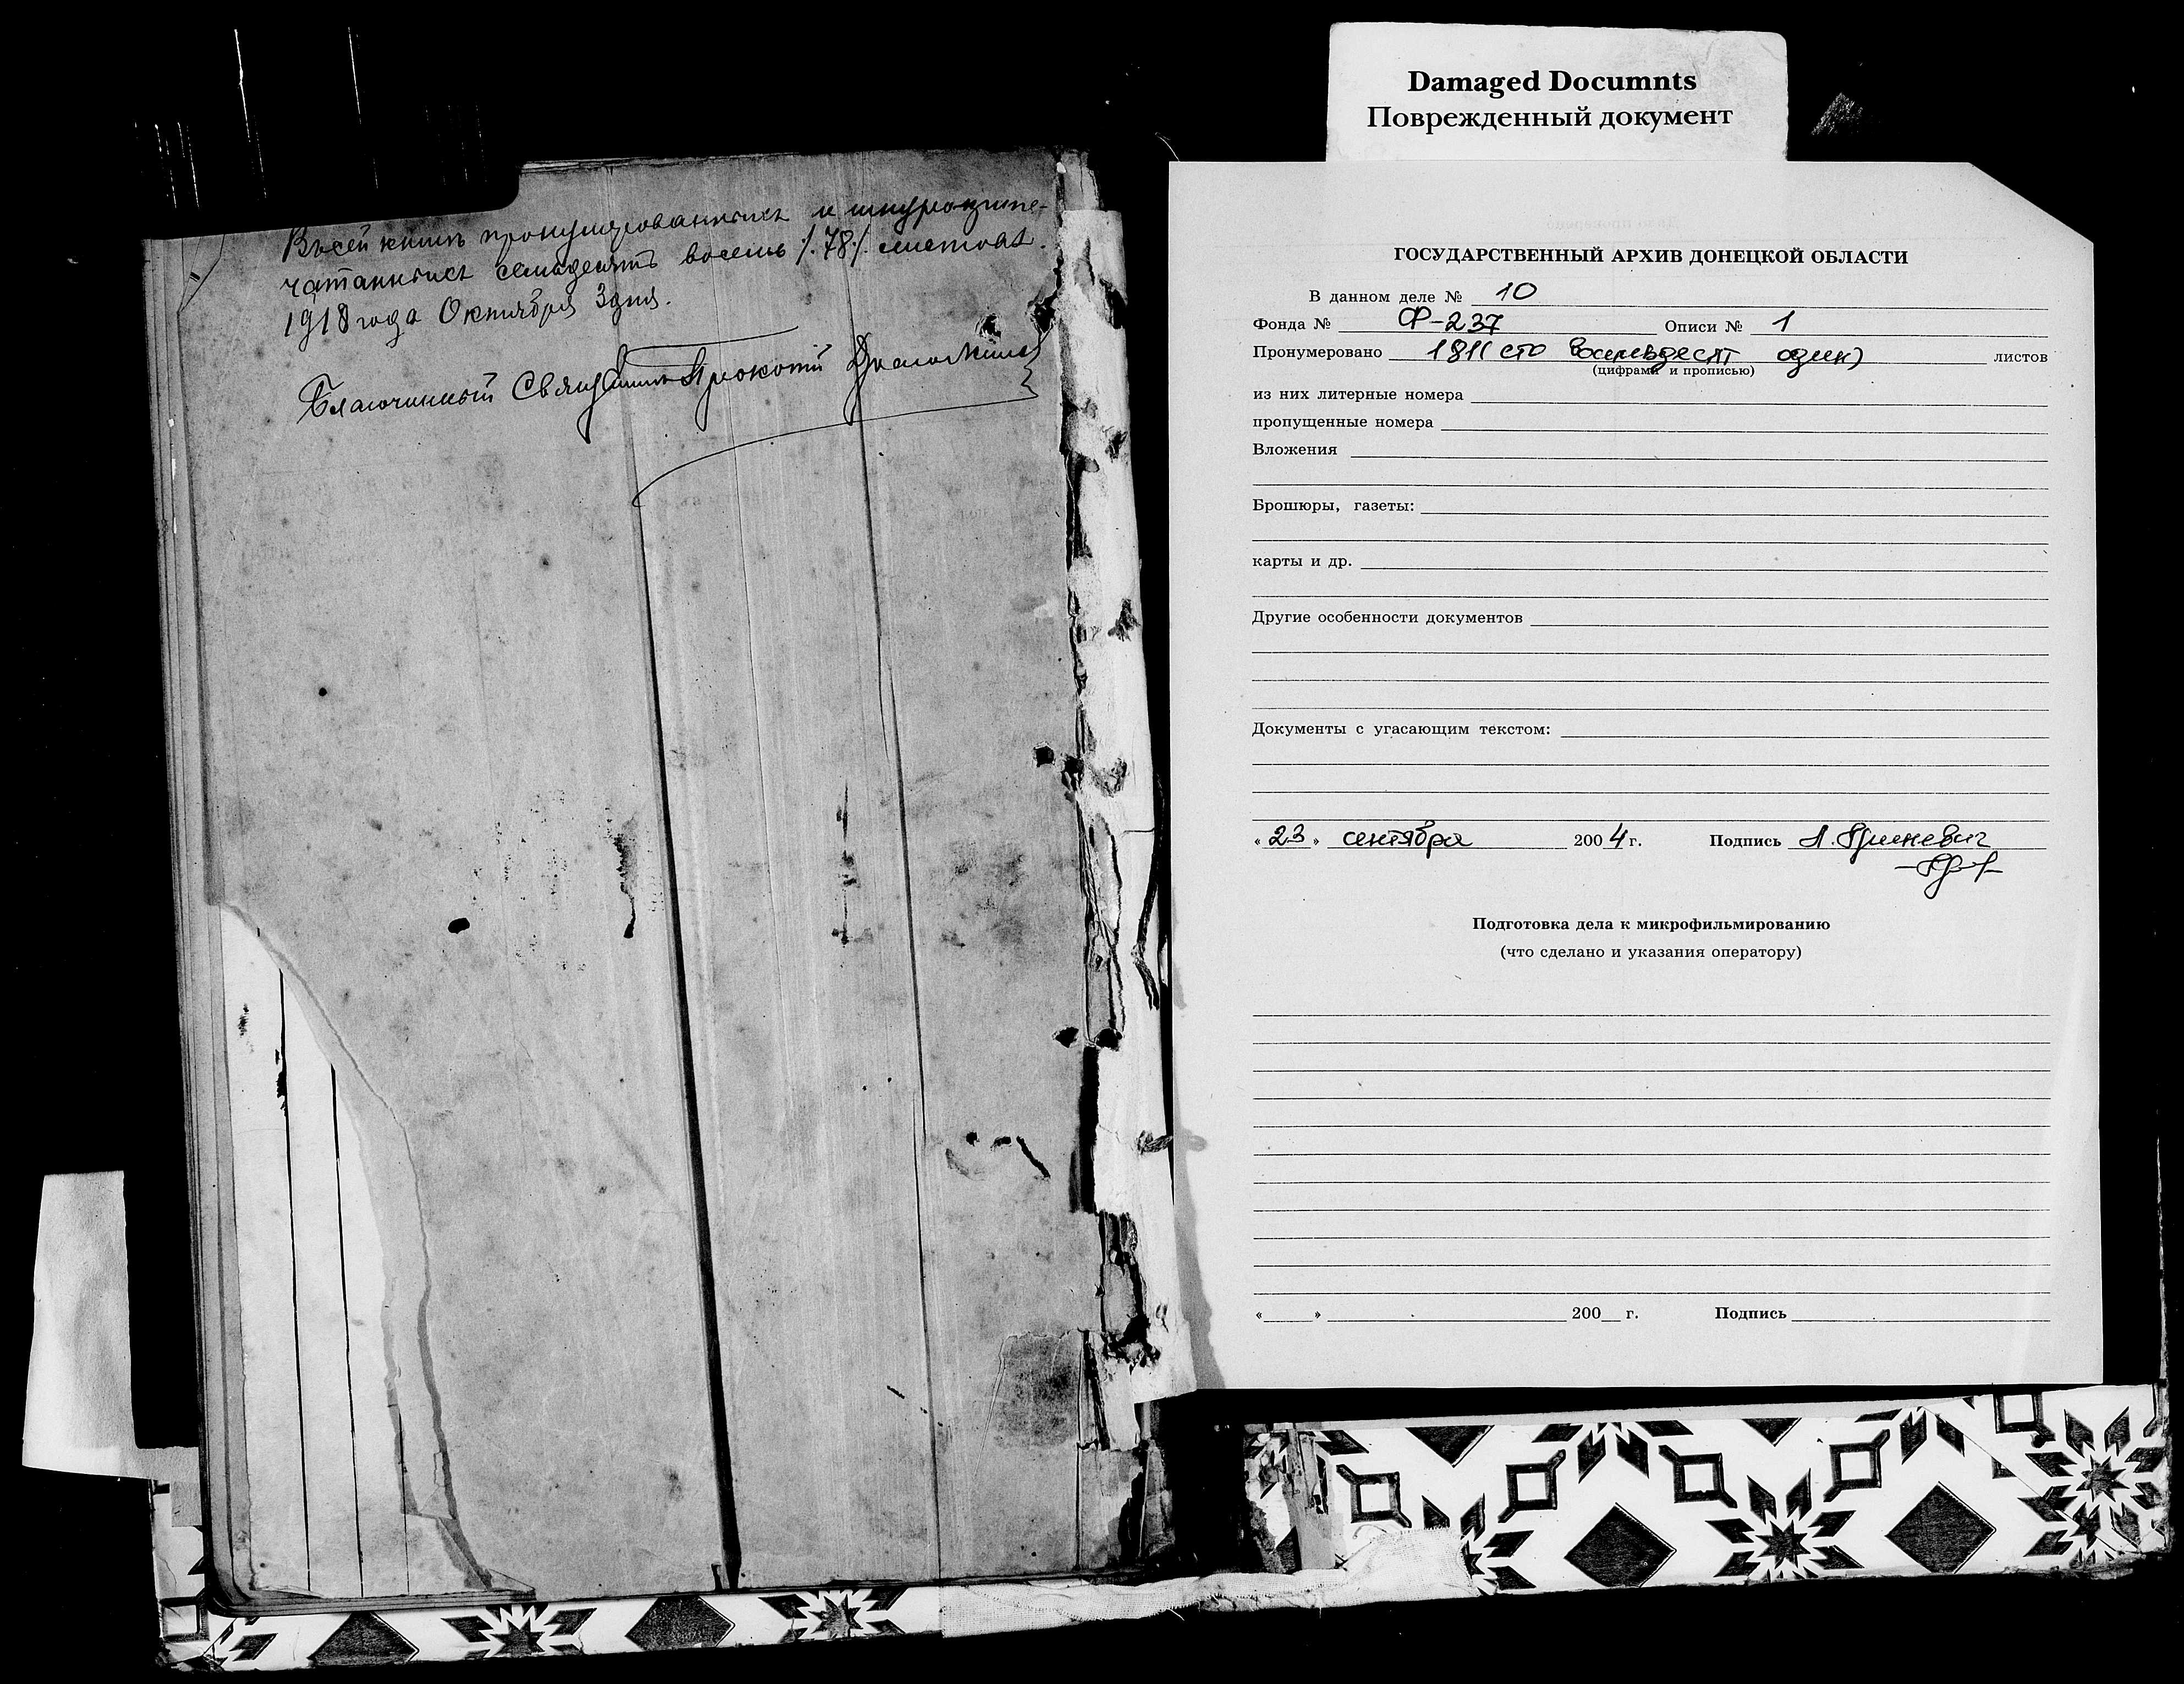 Въсей книгѣ пронумерованныхъ и шнуроприпе-
чатанныхъ семьдесятъ восемь /.78/. листовъ.
1918 года Октября 3 дня.
Благочинный Священникъ Прокопій
Damaged Documnts
Поврежденный документ
ГОСУДАРСТВЕННЫЙ АРХИВ ДОНЕЦКОЙ ОБЛАСТИ
В данном деле № 10
Фонда № Ф-237 Описи № 1
Пронумеровано 181 (сто восемьдесят один) листов
(цифрами и прописью)
из них литерные номера
пропущенные номера
Вложения
Брошюры, газеты:
карты и др.
Другие особенности документов
Документы с угасающим текстом:
«23» сентября 2004 г. Подпись Л.
Подготовка дела к микрофильмированию
(что сделано и указания оператору)
«___» 200__ г. Подпись